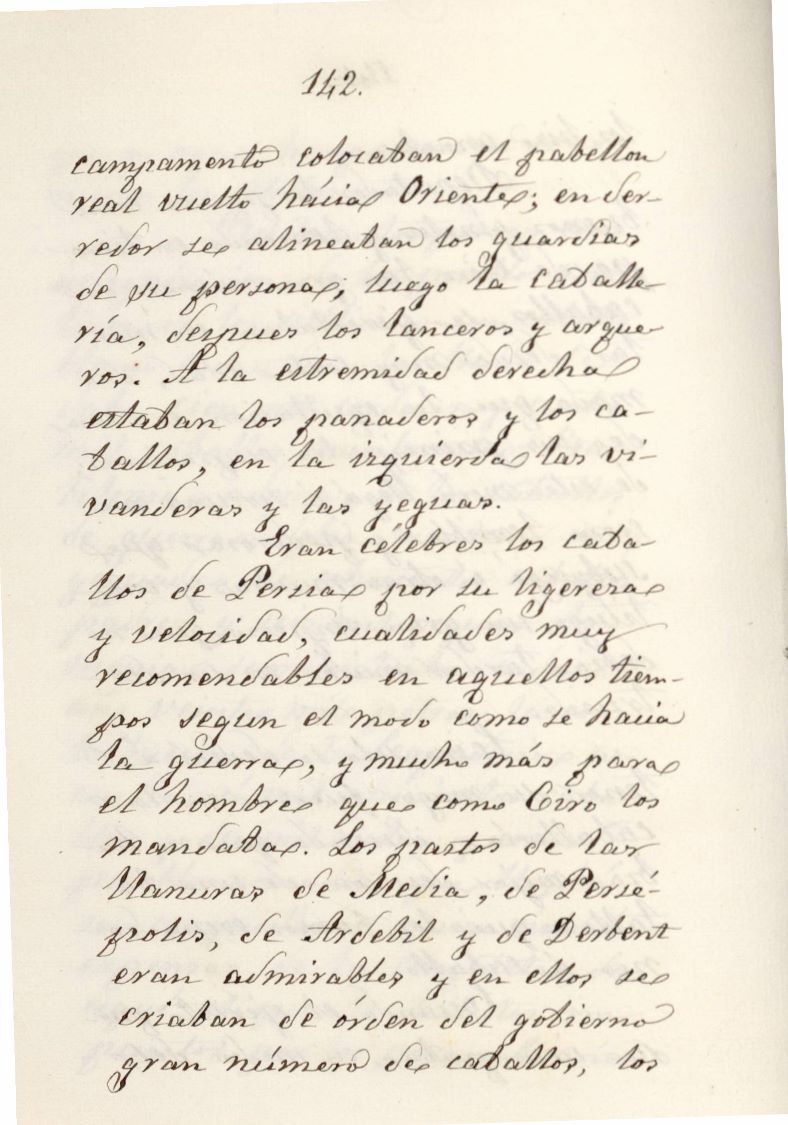 142.
campamento colocaban el pabellon
real vuelto hácia Oriente; en der-
redor se alineaban los guardias
de su persona, luego la caballe-
ría, despues los lanceros y arque-
ros. A la estremidad derecha
estaban los panaderos y los ca-
ballos, en la izquierda las vi-
vanderas y las yeguas.
Eran célebres los caba-
llos de Persia por su ligereza
y velocidad, cualidades muy
recomendables en aquellos tiem-
pos segun el modo como se hacia
la guerra, y mucho más para
el hombre que como Ciro los
mandaba. Los pastos de las
llanuras de Media, de Persé-
polis, de Ardebil y de Derbent
eran admirables y en ellos se
criaban de órden del gobierno
gran número de caballos, los